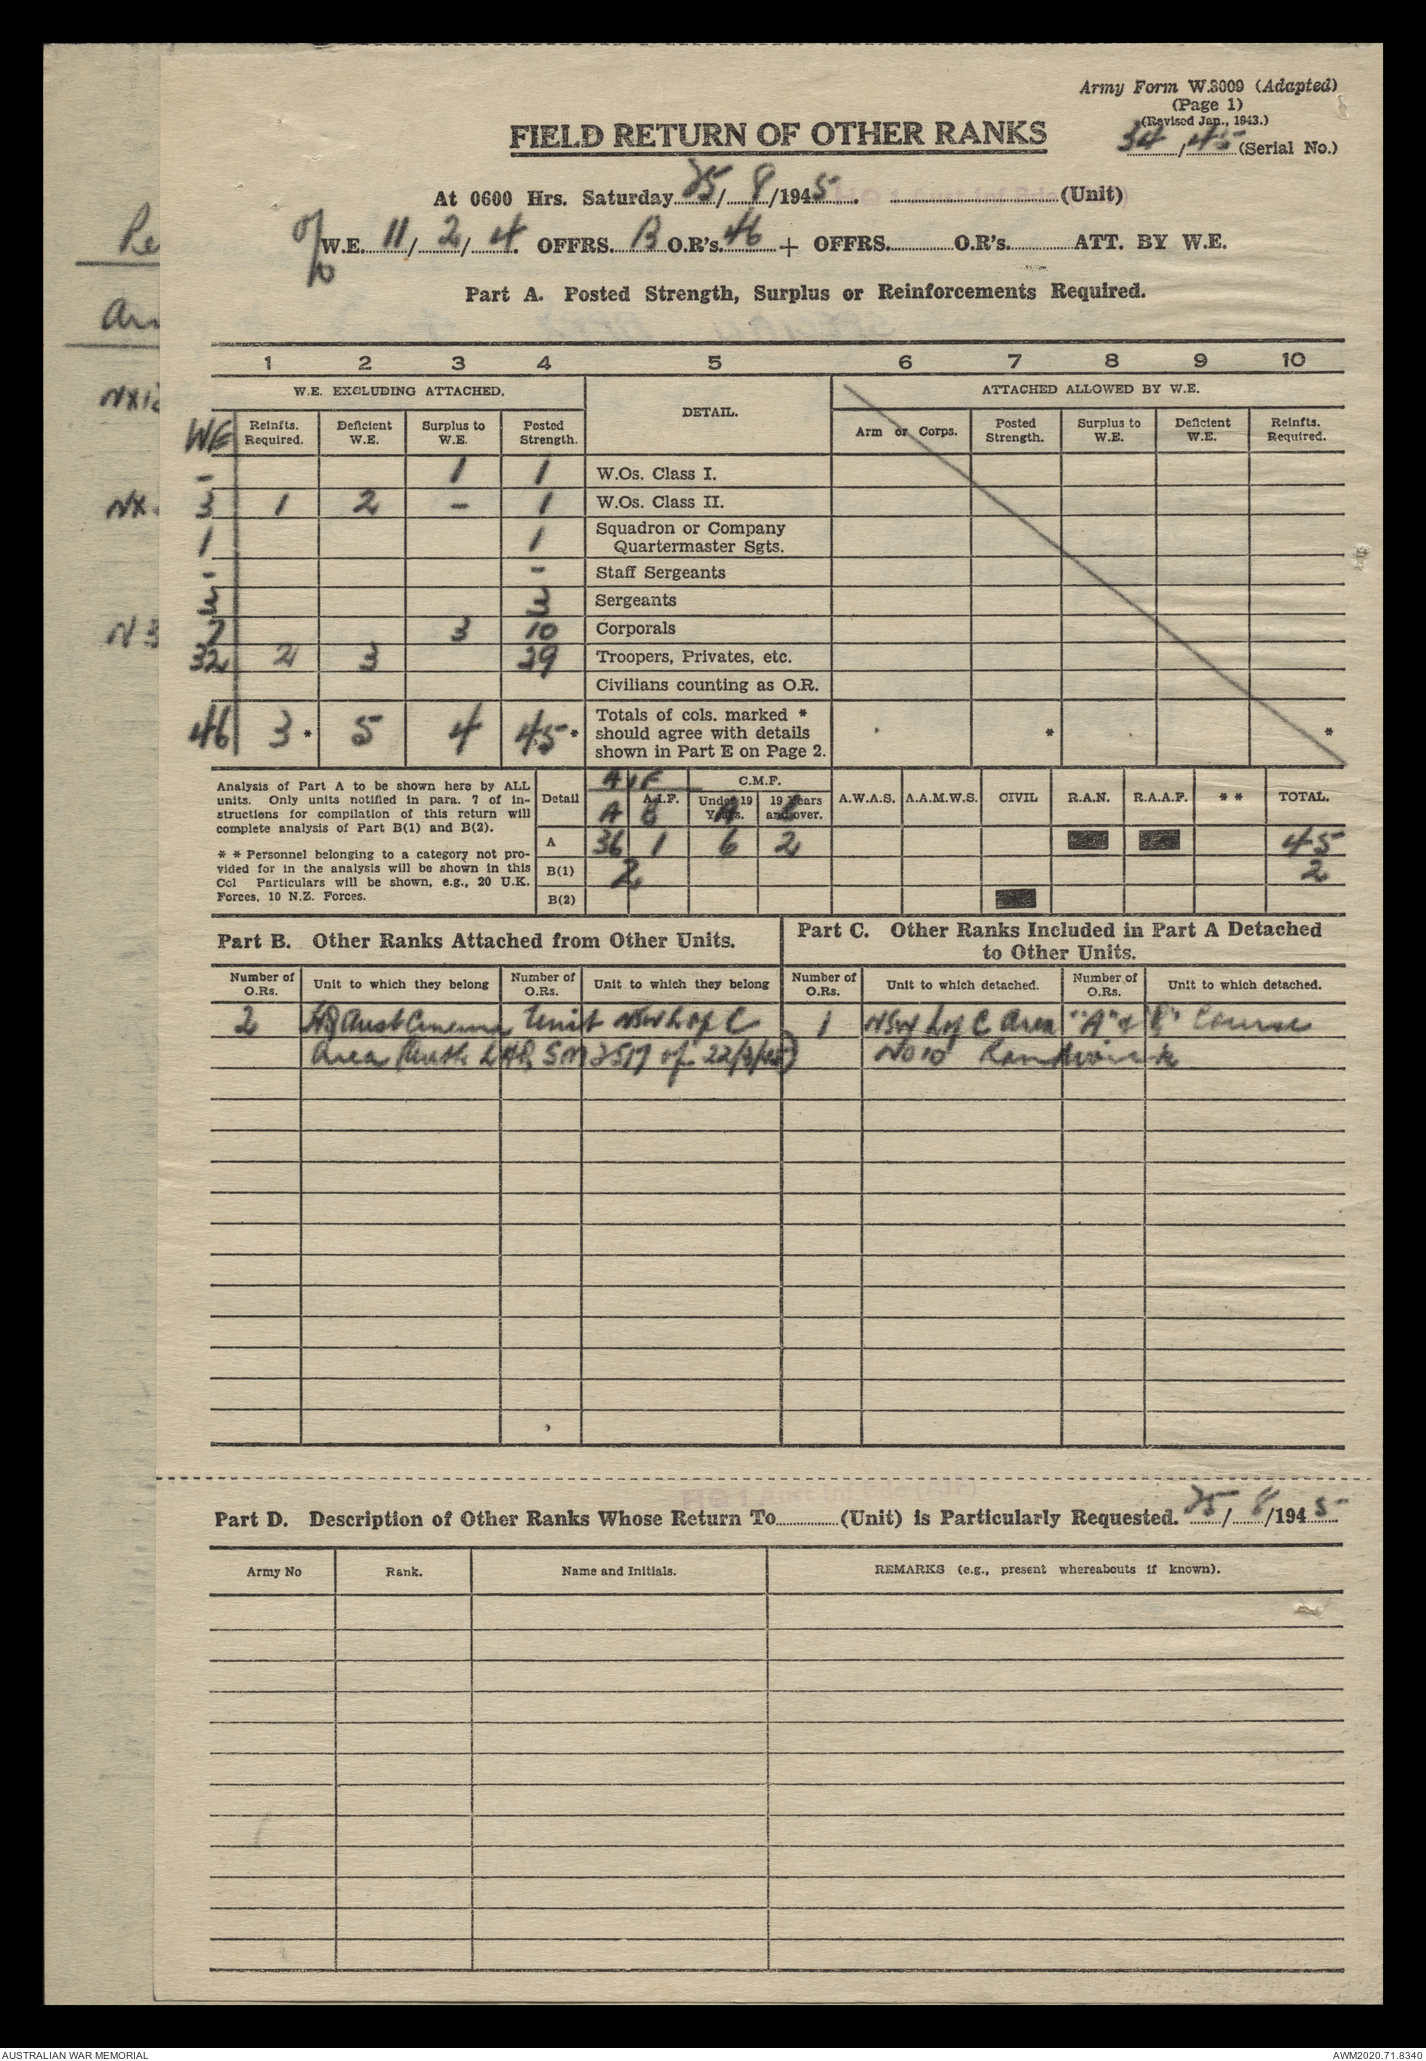 Army Form W.3009 (Adapted)
(Page 1)
(Revised Jan., 1943.)
34/45 (Serial No.)
FIELD RETURN OF OTHER RANKS
At 0600 Hrs. Saturday 25/8/1945. HQ 1 Aust Inf Bde (AIF) (Unit)
W.E. 11/2/4. OFFRS. 13 O.R's. 46 + OFFRS. O.R's. ATT. BY W.E.
Part A. Posted Strength, Surplus or Reinforcements Required.
1 2 3 4 5 6 7 8 9 10
W.E. EXCLUDING ATTACHED. DETAIL. ATTACHED ALLOWED BY W.E.
WE Reinfts. Required. Deficient W.E. Surplus to W.E. Posted Strength. Arm or Corps. Posted Strength. Surplus to W.E. Deficient W.E. Reinfts. Required.
- 1 1 W.Os. Class I.
3 1 2 - 1 W.Os. Class II.
1 1 Squadron or Company Quartermaster Sgts.
- - Staff Sergeants
3 3 Sergeants
7 3 10 Corporals
32 2 3 29 Troopers, Privates, etc.
Civilians counting as O.R.
46 3 * 5 4 45 * Totals of cols. marked * should agree with details shown in Part E on Page 2. * *
Analysis of Part A to be shown here by ALL units. Only units notified in para. 7 of instructions for compilation of this return will complete analysis of Part B(1) and B(2).
* * Personnel belonging to a category not provided for in the analysis will be shown in this Col Particulars will be shown, e.g., 20 U.K. Forces, 10 N.Z. Forces.
AIF C.M.F.
Detail A.I.F. Under 19 Years. 19 Years and over. A.W.A.S. A.A.M.W.S. CIVIL R.A.N. R.A.A.F. * * TOTAL.
A B A
A 36 1 6 2 45
B(1) 2 2
B(2)
Part B. Other Ranks Attached from Other Units.
Part C. Other Ranks Included in Part A Detached to Other Units.
Number of O.Rs. Unit to which they belong Number of O.Rs. Unit to which they belong Number of O.Rs. Unit to which detached. Number of O.Rs. Unit to which detached.
2 HQ Aust Cinema Unit NSW L of C 1 NSW L of C Area "A" & "Q" Course
Area (Auth LHQ SM 2517 of 22/3/45) No 10 Randwick
HQ 1 Aust Inf Bde (AIF)
Part D. Description of Other Ranks Whose Return To (Unit) is Particularly Requested. 25/8/1945
Army No Rank. Name and Initials. REMARKS (e.g., present whereabouts if known).
AUSTRALIAN WAR MEMORIAL
AWM2020.71.8340